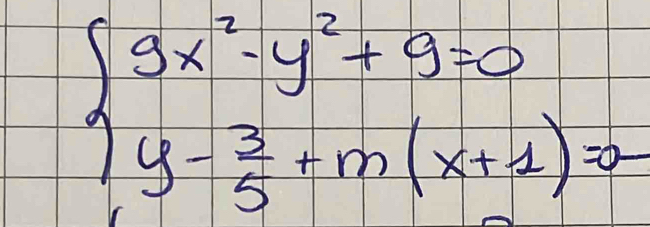 9x² - y² + 9 = 0
y - 3/5 + m(x+1) = 0